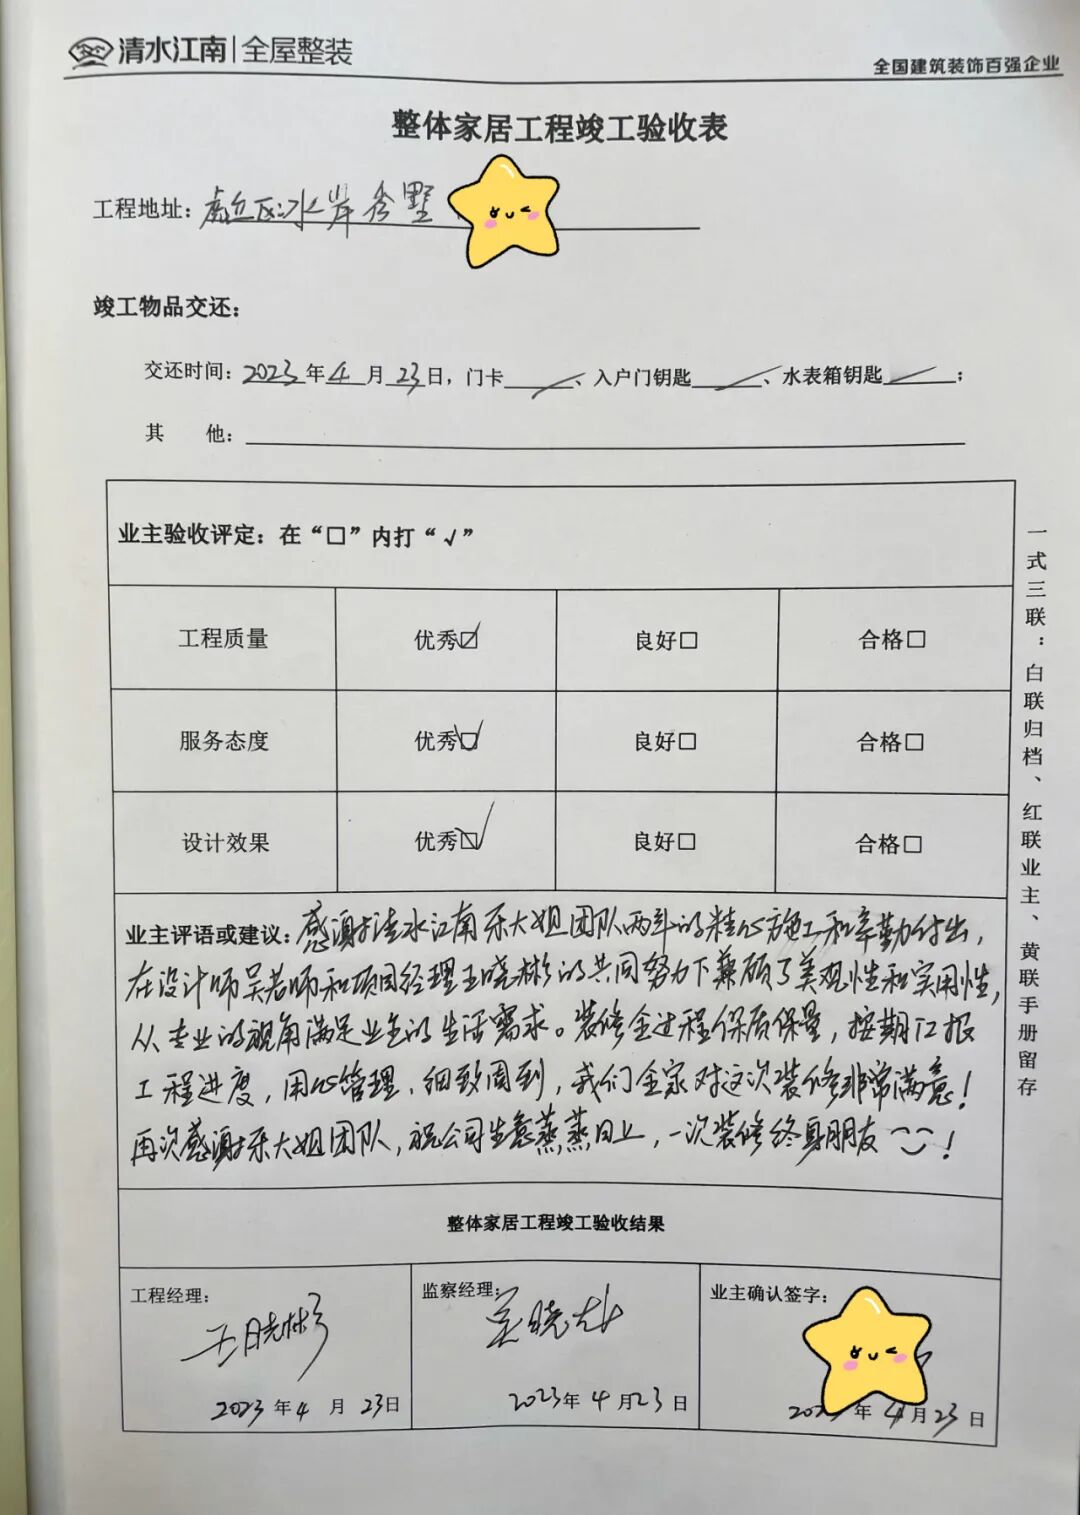 清水江南|全屋整装
全国建筑装饰百强企业
整体家居工程竣工验收表
工程地址：水岸秀墅
竣工物品交还：
交还时间：2023年4月23日，门卡／、入户门钥匙／、水表箱钥匙／；
其 他：
业主验收评定：在“□”内打“√”
工程质量 优秀☑ 良好□ 合格□
服务态度 优秀☑ 良好□ 合格□
设计效果 优秀☑ 良好□ 合格□
业主评语或建议：感谢清水江南乐大姐团队两年的精心施工和辛勤付出，
在设计师吴老师和项目经理王晓彬的共同努力下兼顾了美观性和实用性，
从专业的视角满足业主的生活需求。装修全过程保质保量，按期汇报
工程进度，用心管理、细致周到，我们全家对这次装修非常满意！
再次感谢乐大姐团队，祝公司生意蒸蒸日上，一次装修终身朋友！
整体家居工程竣工验收结果
工程经理： 监察经理： 业主确认签字：
王晓彬
2023年4月23日 2023年4月23日 2023年4月23日
一式三联：白联归档、红联业主、黄联手册留存